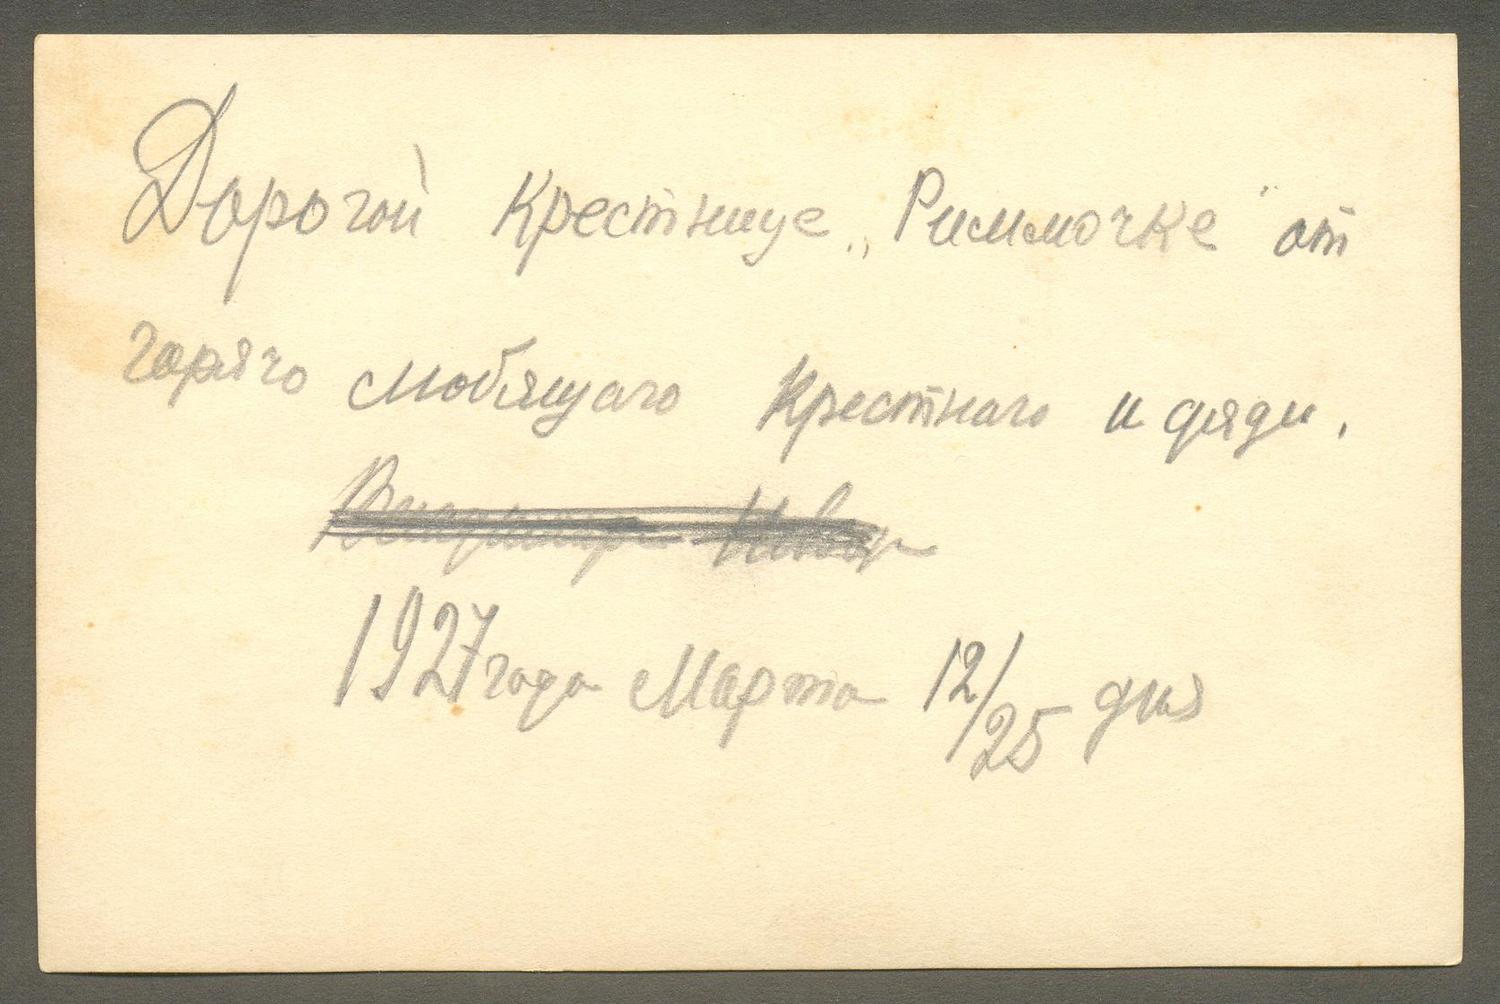 Дорогой Крестнице „Риммочке" от
горячо любящаго Крестнаго и дяди.
1927 года Марта 12/25 дня